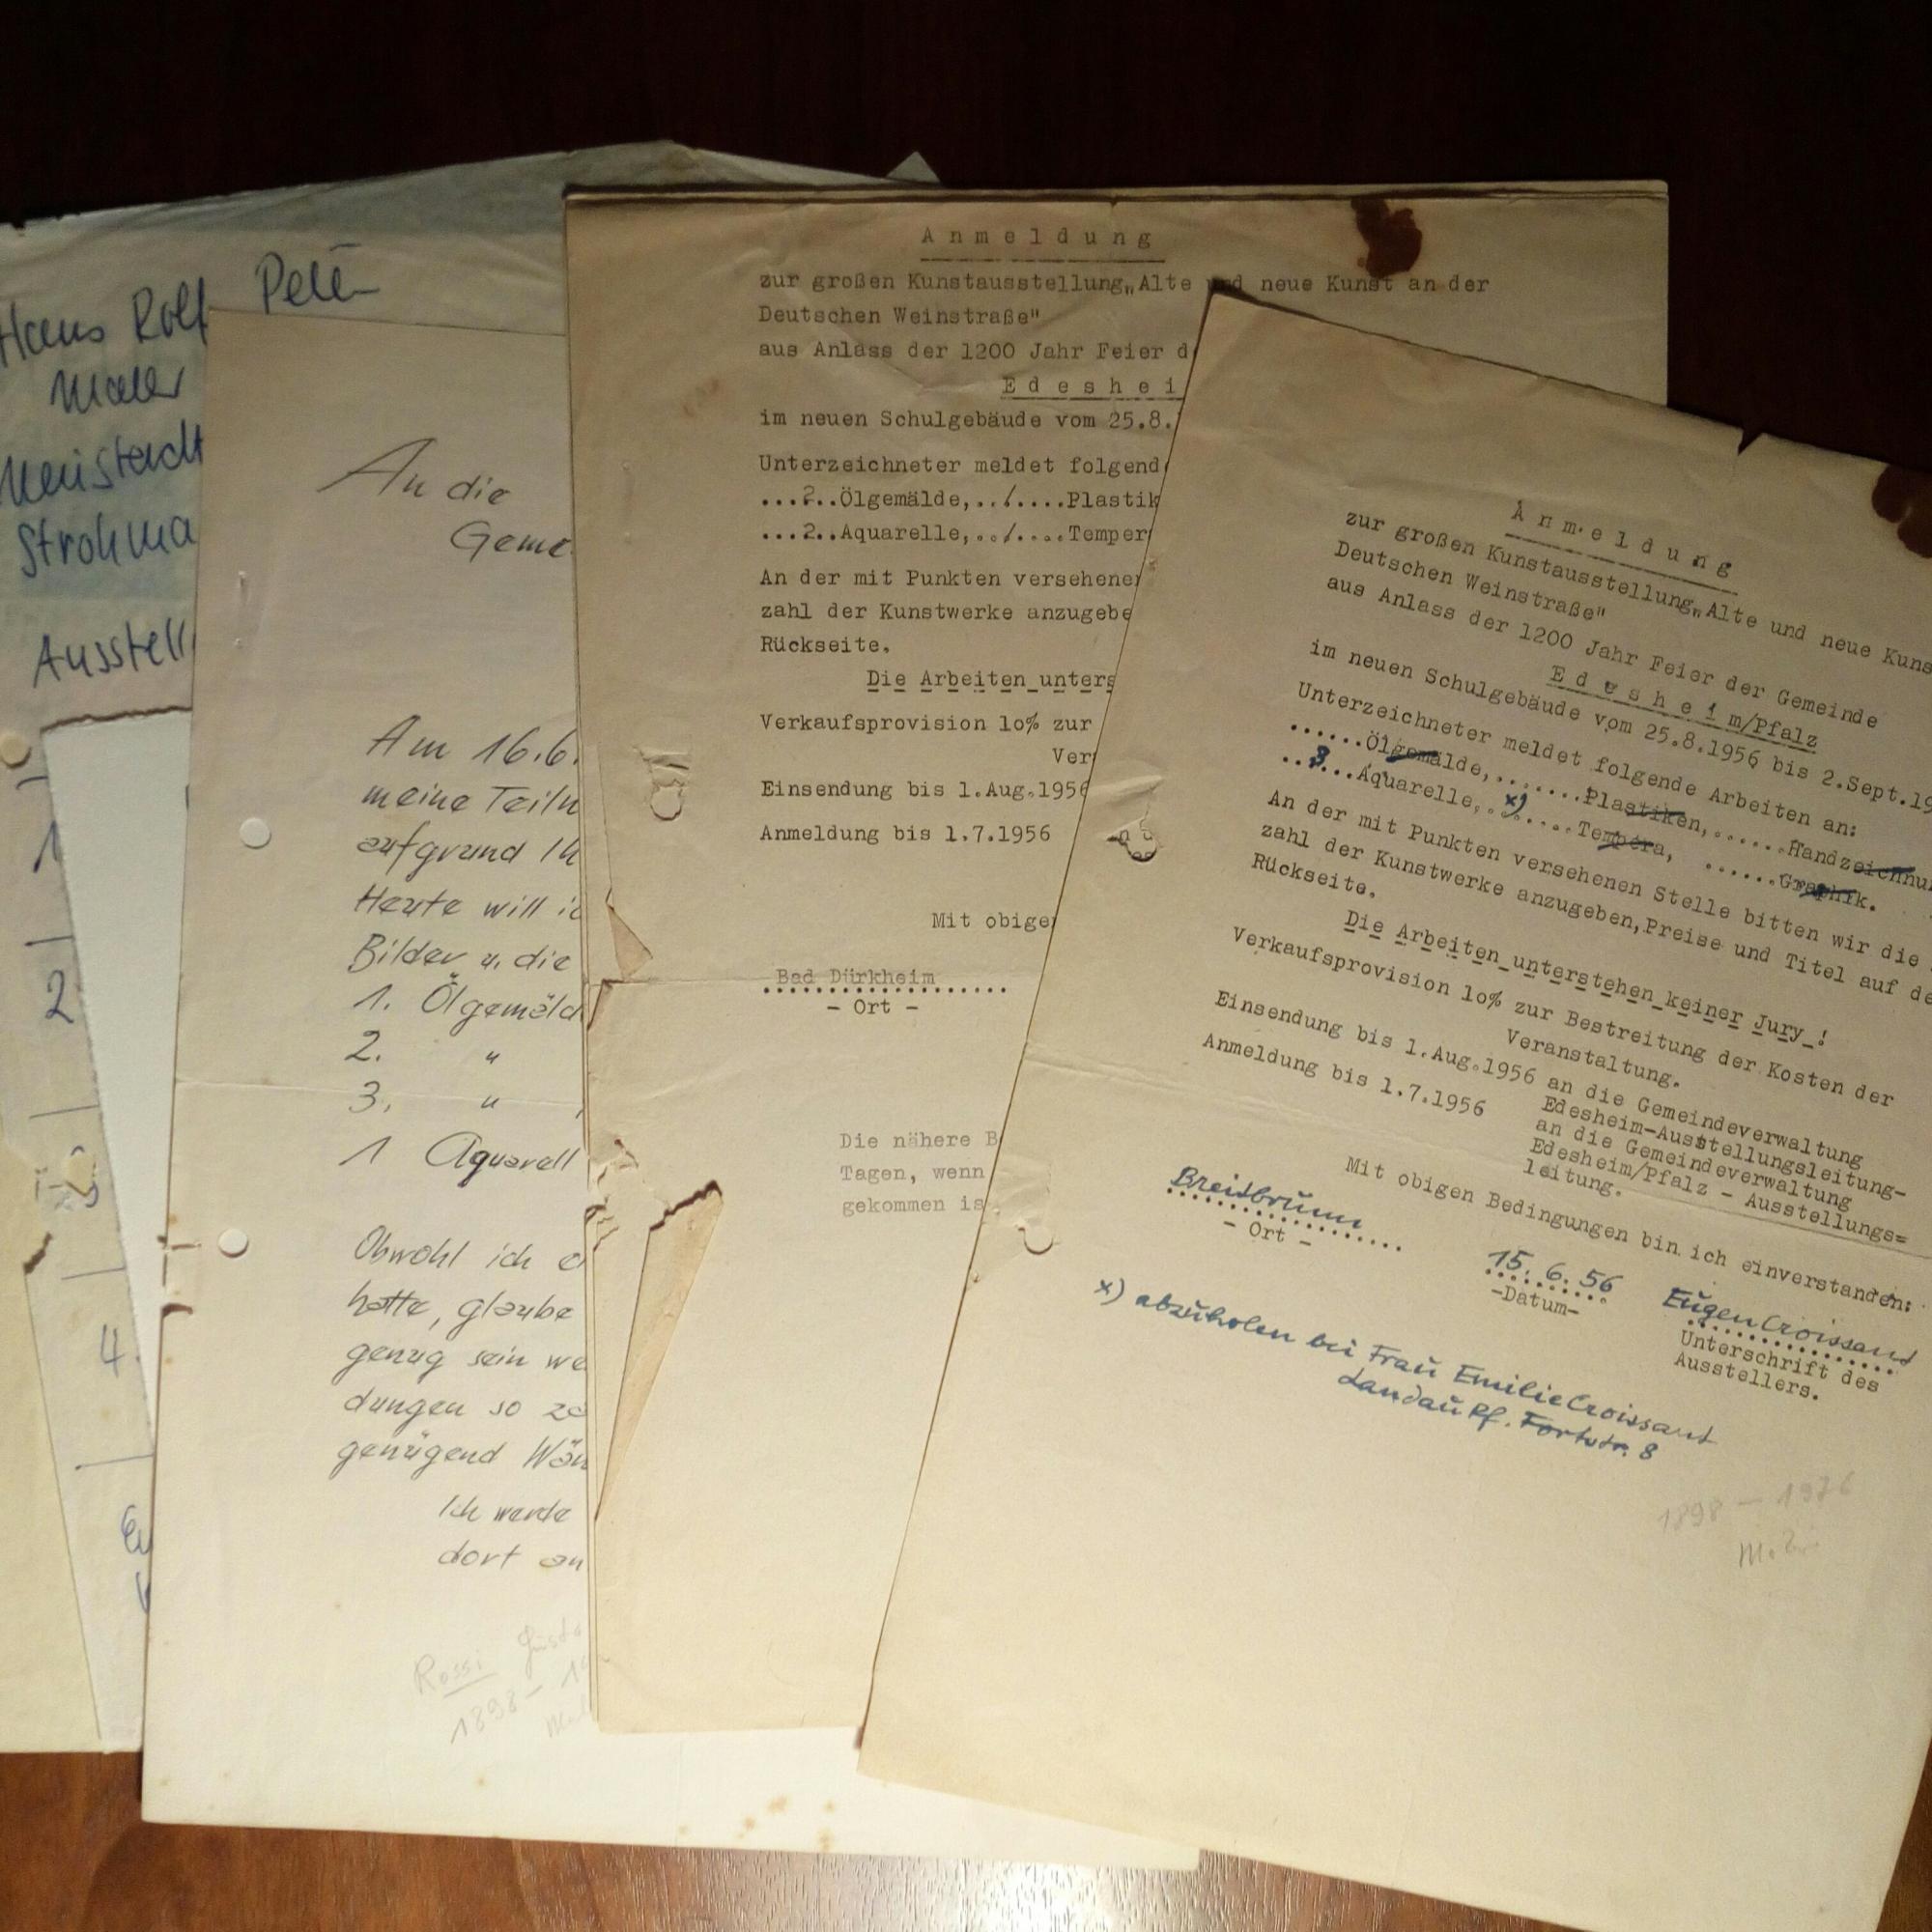 Hans Rolf Peter
Maler
Neustadt
Strohma
Ausstell
1
2
3
4.
An die
Geme
Am 16.6.
meine Teiln
aufgrund Ih
Heute will ic
Bilder u. die
1. Ölgemäld
2. "
3. "
1 Aquarell
Obwohl ich
hatte, glaube
genug sein we
dungen so
genügend Wän
Ich werde
dort an
Rossi
1898 –
Anmeldung
zur großen Kunstausstellung„Alte und neue Kunst an der
Deutschen Weinstraße"
aus Anlass der 1200 Jahr Feier d
Edeshei
im neuen Schulgebäude vom 25.8.
Unterzeichneter meldet folgend
...2..Ölgemälde,../....Plastik
...2..Aquarelle,../....Temper
An der mit Punkten versehene
zahl der Kunstwerke anzugebe
Rückseite.
Die Arbeiten unters
Verkaufsprovision 10% zur
Ver
Einsendung bis 1.Aug.1956
Anmeldung bis 1.7.1956
Mit obige
Bad Dürkheim
- Ort -
Die nähere B
Tagen, wenn
gekommen is
Anmeldung
zur großen Kunstausstellung„Alte und neue Kuns
Deutschen Weinstraße"
aus Anlass der 1200 Jahr Feier der Gemeinde
Edesheim/Pfalz
im neuen Schulgebäude vom 25.8.1956 bis 2.Sept.19
Unterzeichneter meldet folgende Arbeiten an:
......Ölgemälde,.......Plastiken,......Handzeichnu
..3...Aquarelle,..x)....Tempera, ......Graphik.
An der mit Punkten versehenen Stelle bitten wir die
zahl der Kunstwerke anzugeben,Preise und Titel auf de
Rückseite.
Die Arbeiten unterstehen keiner Jury !
Verkaufsprovision 10% zur Bestreitung der Kosten der
Veranstaltung.
Einsendung bis 1.Aug.1956 an die Gemeindeverwaltung
Edesheim-Ausstellungsleitung-
Anmeldung bis 1.7.1956 an die Gemeindeverwaltung
Edesheim/Pfalz - Ausstellungs=
leitung.
Mit obigen Bedingungen bin ich einverstanden:
Breitbrunn
- Ort -
15.6.56
-Datum-
Eugen Croissant
Unterschrift des
Ausstellers.
x) abzuholen bei Frau Emilie Croissant
Landau Pf. Fortstr. 8
1898 – 1976